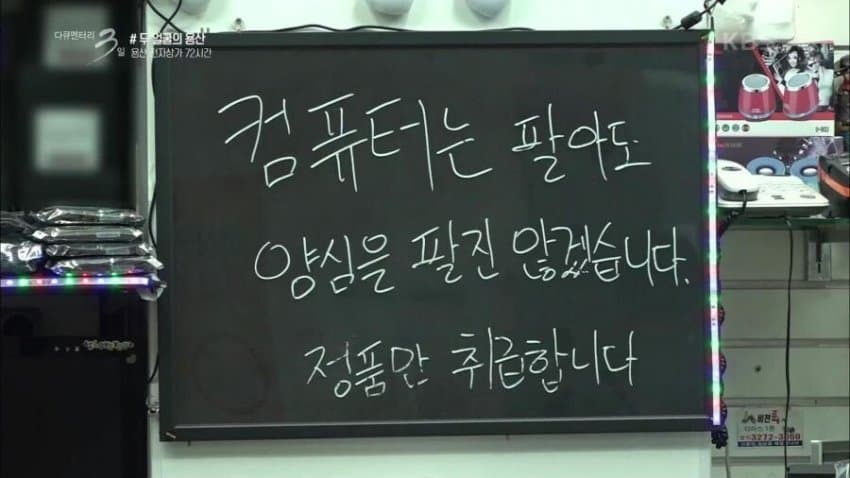 다큐멘터리 3일
# 두 얼굴의 용산
용산 전자상가 72시간
KBS
컴퓨터는 팔아도
양심을 팔진 않겠습니다.
정품만 취급합니다
비전폭
3272-3050